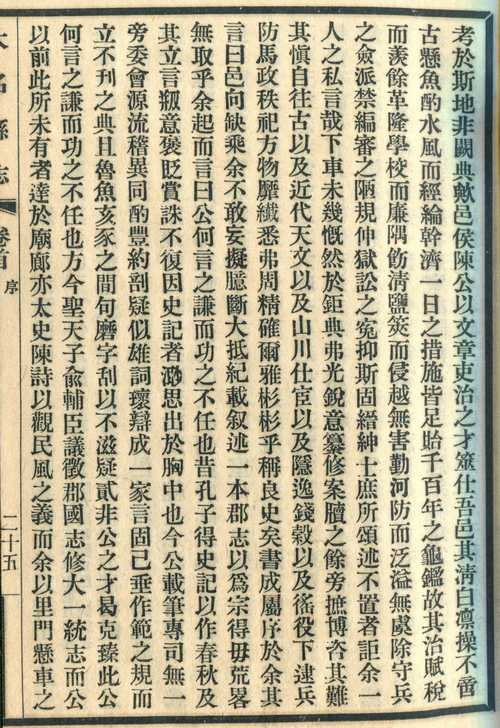 考於斯地非闕典歟邑侯陳公以文章吏治之才筮仕吾邑其清白凛操不啻
古懸魚酌水風而經綸幹濟一日之措施皆足貽千百年之龜鑑故其治賦稅
而羨餘革隆學校而廉隅飭清鹽筴而侵越無害勤河防而泛溢無虞除守兵
之僉派禁編審之陋規伸獄訟之寃抑斯固縉紳士庶所頌述不置者詎余一
人之私言哉下車未幾慨然於鉅典弗光銳意纂修案牘之餘旁摭博咨其難
其愼自往古以及近代天文以及山川仕宦以及隱逸錢穀以及徭役下逮兵
防馬政秩祀方物靡纖悉弗周精確爾雅彬彬乎稱良史矣書成屬序於余其
言曰邑向缺乘余不敢妄擬臆斷大抵紀載叙述一本郡志以爲宗得毋荒畧
無取乎余起而言曰公何言之謙而功之不任也昔孔子得史記以作春秋及
其立言剏意褒貶賞誅不復因史記者渺思出於胸中也今公載筆專司無一
旁委會源流稽異同酌豐約剖疑似雄詞瓌辯成一家言固已垂作範之規而
立不刋之典且魯魚亥豕之間句磨字刮以不滋疑貳非公之才曷克臻此公
何言之謙而功之不任也方今聖天子俞輔臣議徵郡國志修大一統志而公
以前此所未有者達於廟廊亦太史陳詩以觀民風之義而余以里門懸車之
大名縣志
卷首
序
二十五